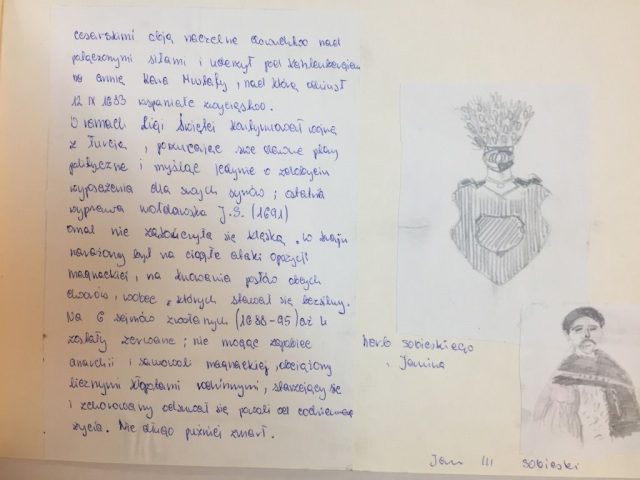 cesarskimi objął naczelne dowództwo nad
połączonymi siłami i uderzył pod Kahlenbergiem
na armię Kara Mustafy, nad którą odniósł
12 IX 1683 wspaniałe zwycięstwo.
W ramach Ligi Świętej kontynuował wojnę
z Turcją, porzucając swe dawne plany
polityczne i myśląc jedynie o zdobyciu
wyposażenia dla swych synów; ostatnia
wyprawa mołdawska J.S. (1691)
omal nie zakończyła się klęską. W kraju
narażony był na ciągłe ataki opozycji
magnackiej, na knowania posłów obcych
dworów, wobec których stawał się bezsilny.
Na 6 sejmów zwołanych (1688-95) aż 4
zostały zerwane; nie mogąc zapobiec
anarchii i samowoli magnackiej, obciążony
licznymi kłopotami rodzinnymi, starzejący się
i schorowany odsuwał się pomali od codziennego
życia. Nie długo puźniej zmarł.
herb sobieskiego
Janina
Jan III sobieski